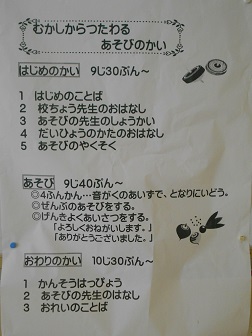 むかしからつたわる
あそびのかい
はじめのかい 9じ30ぷん~
1 はじめのことば
2 校ちょう先生のおはなし
3 あそびの先生のしょうかい
4 だいひょうのかたのおはなし
5 あそびのやくそく
あそび 9じ40ぷん~
◎4ふんかん…音がくのあいずで、となりにいどう。
◎ぜんぶのあそびをする。
◎げんきよくあいさつをする。
「よろしくおねがいします。」
「ありがとうございました。」
おわりのかい 10じ30ぷん~
1 かんそうはっぴょう
2 あそびの先生のはなし
3 おれいのことば